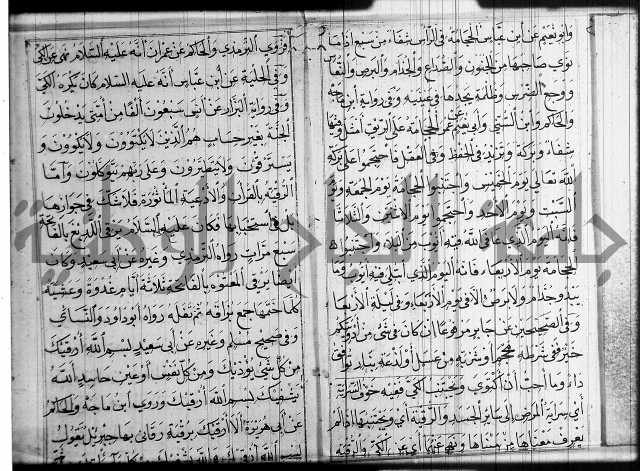 وأبو نعيم عن ابن عباس الحجامة في الرأس شفاء من سبع إذا ما
نوى صاحبها من الجنون والصداع والجذام والبرص والنعاس
ووجع الضرس وظلمة يجدها في عينيه وفي رواية ابن ماجه
والحاكم وابن السني وأبي نعيم عن عمر الحجامة على الريق أمثل وفيها
شفاء وبركة وتزيد في الحفظ وفي العقل فاحتجموا على بركة
الله تعالى يوم الخميس واجتنبوا الحجامة يوم الجمعة ويوم
السبت ويوم الأحد واحتجموا يوم الاثنين والثلاثا
فإنه اليوم الذي عافى الله فيه أيوب من البلاء واجتنبوا
الحجامة يوم الأربعاء فإنه اليوم الذي ابتلي فيه أيوب وما
يبدو جذام ولا برص إلا في يوم الأربعاء وفي ليلة الأربعاء
وفي الصحيحين عن جابر مرفوعا إن كان في شيء من أدويتكم
خير ففي شرطة محجم أو شربة من عسل أو لذعة بنار توافق
داء وما أحب أن أكتوي
إلى سائر الجسد والرقية أي ويجتنبها إذا لم
يعرف معناها
وروى الترمذي والحاكم عن عمران أنه عليه السلام نهى عن الكي
وفي الحلية عن ابن عباس أنه عليه السلام كان يكره الكي
وفي رواية البزار عن أنس سبعون ألفا من أمتي يدخلون
الجنة بغير حساب هم الذين لا يكتوون ولا يكوون و
يسترقون ولا يتطيرون وعلى ربهم يتوكلون وأما
الرقية بالقرآن والأدعية المأثورة فلا شك في جوازها
بل في استحبابها فكان عليه السلام يرقي اللديغ بالفاتحة
سبع مرات رواه الترمذي وغيره عن أبي سعيد وكان
أيضا يرقي المعتوه بالفاتحة ثلاثة أيام غدوة وعشية
كلما ختمها جمع بزاقه ثم تفله رواه أبو داود والنسائي
وفي صحيح مسلم وغيره عن أبي سعيد بسم الله أرقيك
من كل شيء يؤذيك ومن كل نفس أو عين حاسد الله
يشفيك بسم الله أرقيك وروى ابن ماجه والحاكم
عن أبي هريرة ألا أرقيك برقية رقاني بها جبريل تقول
بسم الله أرقيك
جامعة النجاح الوطنية